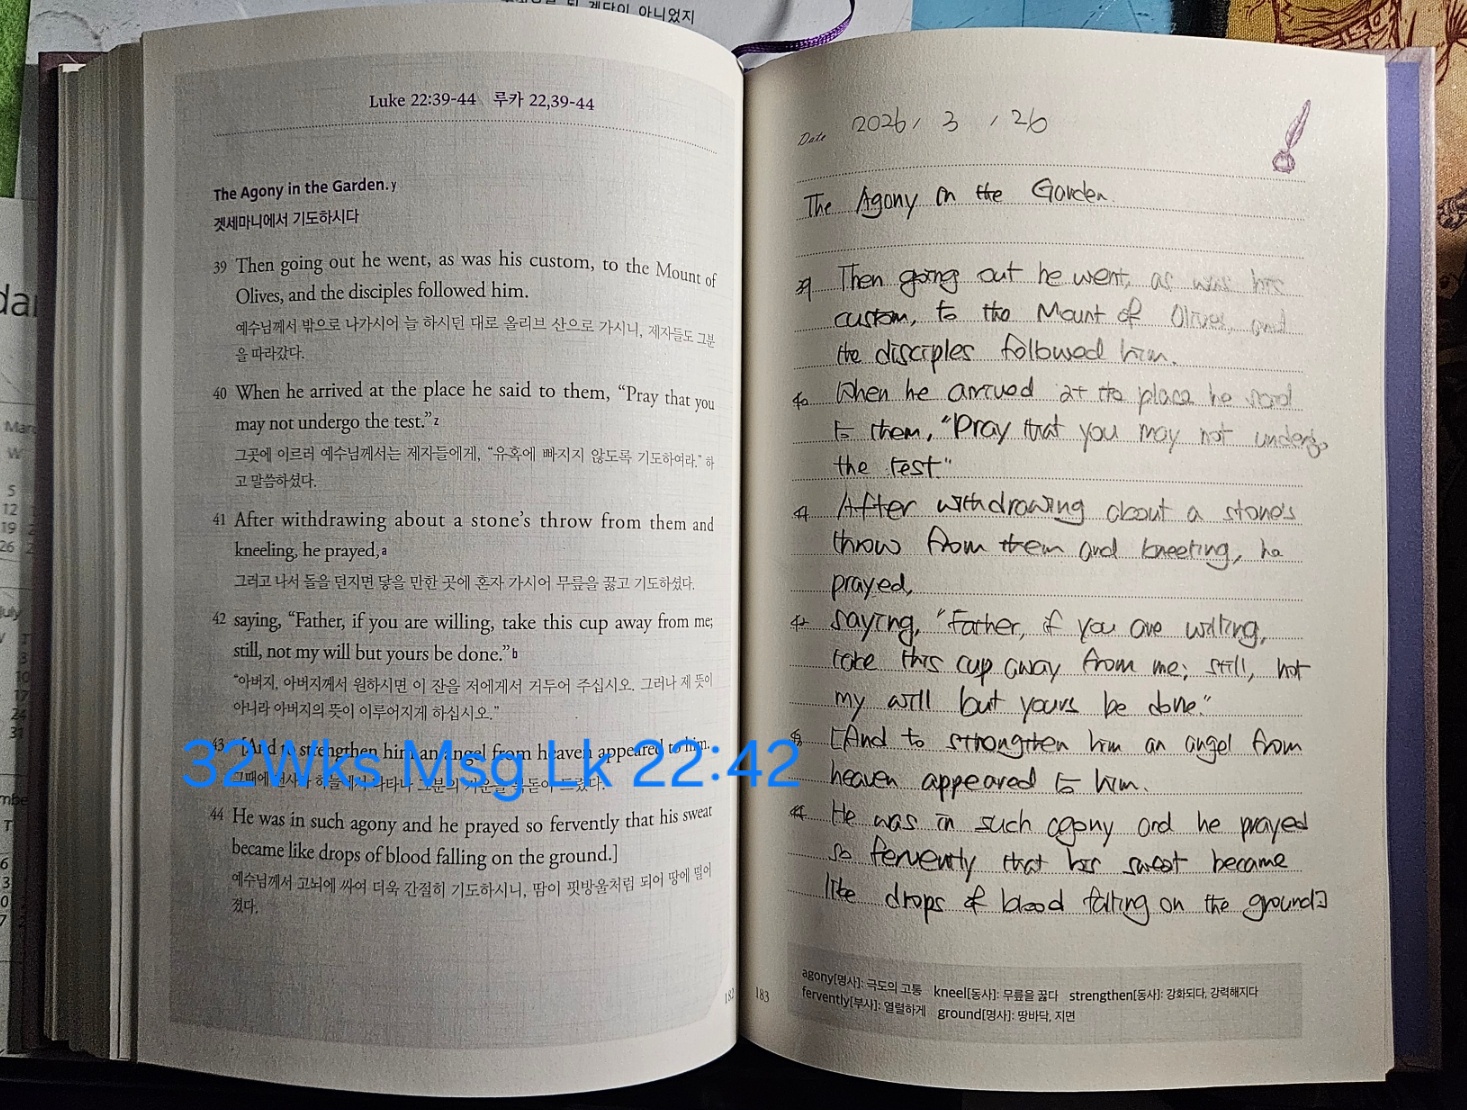 계단이 아니었지
Luke 22:39-44 루카 22,39-44
The Agony in the Garden.y
겟세마니에서 기도하시다
39 Then going out he went, as was his custom, to the Mount of
Olives, and the disciples followed him.
예수님께서 밖으로 나가시어 늘 하시던 대로 올리브 산으로 가시니, 제자들도 그분
을 따라갔다.
40 When he arrived at the place he said to them, “Pray that you
may not undergo the test.”z
그곳에 이르러 예수님께서는 제자들에게, “유혹에 빠지지 않도록 기도하여라.” 하
고 말씀하셨다.
41 After withdrawing about a stone’s throw from them and
kneeling, he prayed,a
그러고 나서 돌을 던지면 닿을 만한 곳에 혼자 가시어 무릎을 꿇고 기도하셨다.
42 saying, “Father, if you are willing, take this cup away from me;
still, not my will but yours be done.”b
“아버지, 아버지께서 원하시면 이 잔을 저에게서 거두어 주십시오. 그러나 제 뜻이
아니라 아버지의 뜻이 이루어지게 하십시오.”
43 [And to strengthen him an angel from heaven appeared to him.
32Wks Msg Lk 22:42
44 He was in such agony and he prayed so fervently that his sweat
became like drops of blood falling on the ground.]
예수님께서 고뇌에 싸여 더욱 간절히 기도하시니, 땀이 핏방울처럼 되어 땅에 떨어
졌다.
182
Date 2026 / 3 / 26
The Agony in the Garden.
39 Then going out he went, as was his
custom, to the Mount of Olives, and
the disciples followed him.
40 When he arrived at the place he said
to them, "Pray that you may not undergo
the test."
41 After withdrawing about a stone's
throw from them and kneeling, he
prayed,
42 saying, "Father, if you are willing,
take this cup away from me; still, not
my will but yours be done."
43 [And to strengthen him an angel from
heaven appeared to him.
44 He was in such agony and he prayed
so fervently that his sweat became
like drops of blood falling on the ground]
agony[명사]: 극도의 고통 kneel[동사]: 무릎을 꿇다 strengthen[동사]: 강화되다, 강력해지다
fervently[부사]: 열렬하게 ground[명사]: 땅바닥, 지면
183